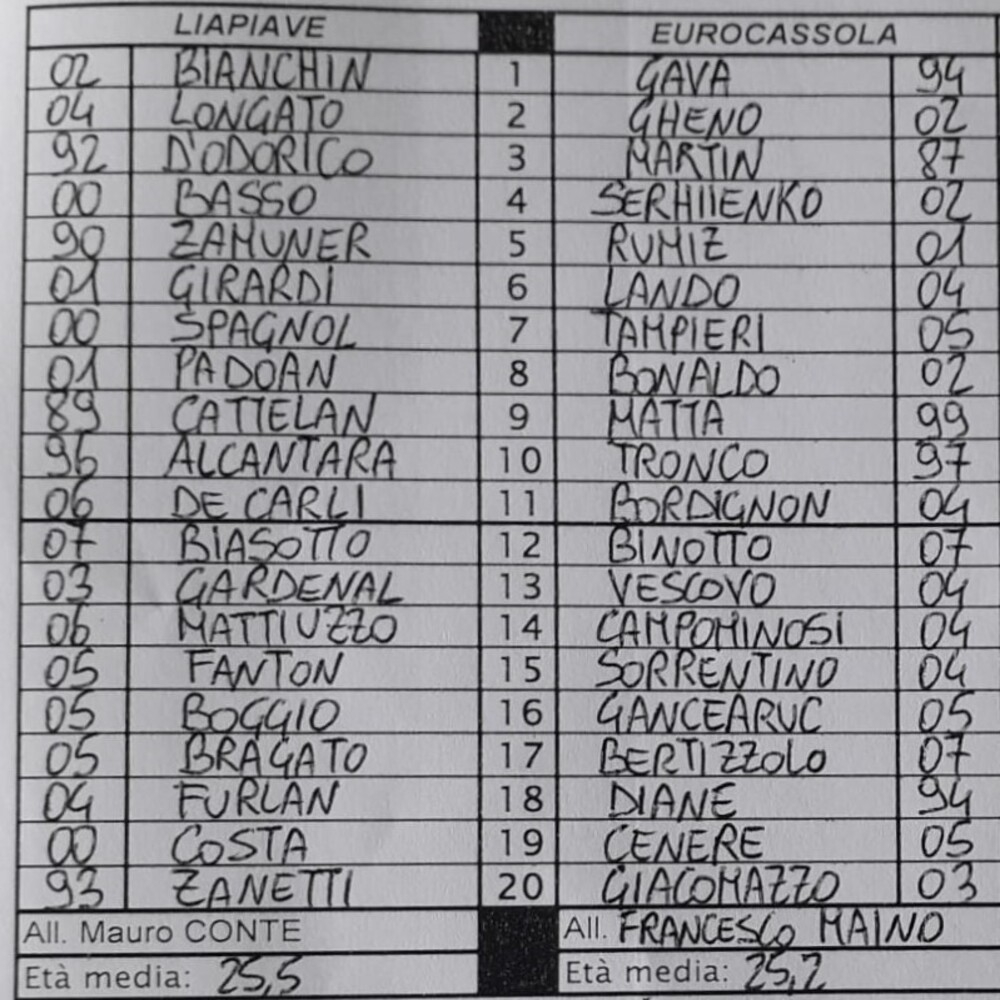 LIAPIAVE EUROCASSOLA
02 BIANCHIN 1 GAVA 94
04 LONGATO 2 GHENO 02
92 D'ODORICO 3 MARTIN 87
00 BASSO 4 SERHIIENKO 02
90 ZAMUNER 5 RUMIZ 01
01 GIRARDI 6 LANDO 04
00 SPAGNOL 7 TAMPIERI 05
01 PADOAN 8 BONALDO 02
89 CATTELAN 9 MATTA 99
96 ALCANTARA 10 TRONCO 97
06 DE CARLI 11 BORDIGNON 04
07 BIASOTTO 12 BINOTTO 07
03 GARDENAL 13 VESCOVO 04
06 MATTIUZZO 14 CAMPOMINOSI 04
05 FANTON 15 SORRENTINO 04
05 BOGGIO 16 GANCEARUC 05
05 BRAGATO 17 BERTIZZOLO 07
04 FURLAN 18 DIANE 94
00 COSTA 19 CENERE 05
93 ZANETTI 20 GIACOMAZZO 03
All. Mauro CONTE All. FRANCESCO MAINO
Età media: 25,5 Età media: 25,2